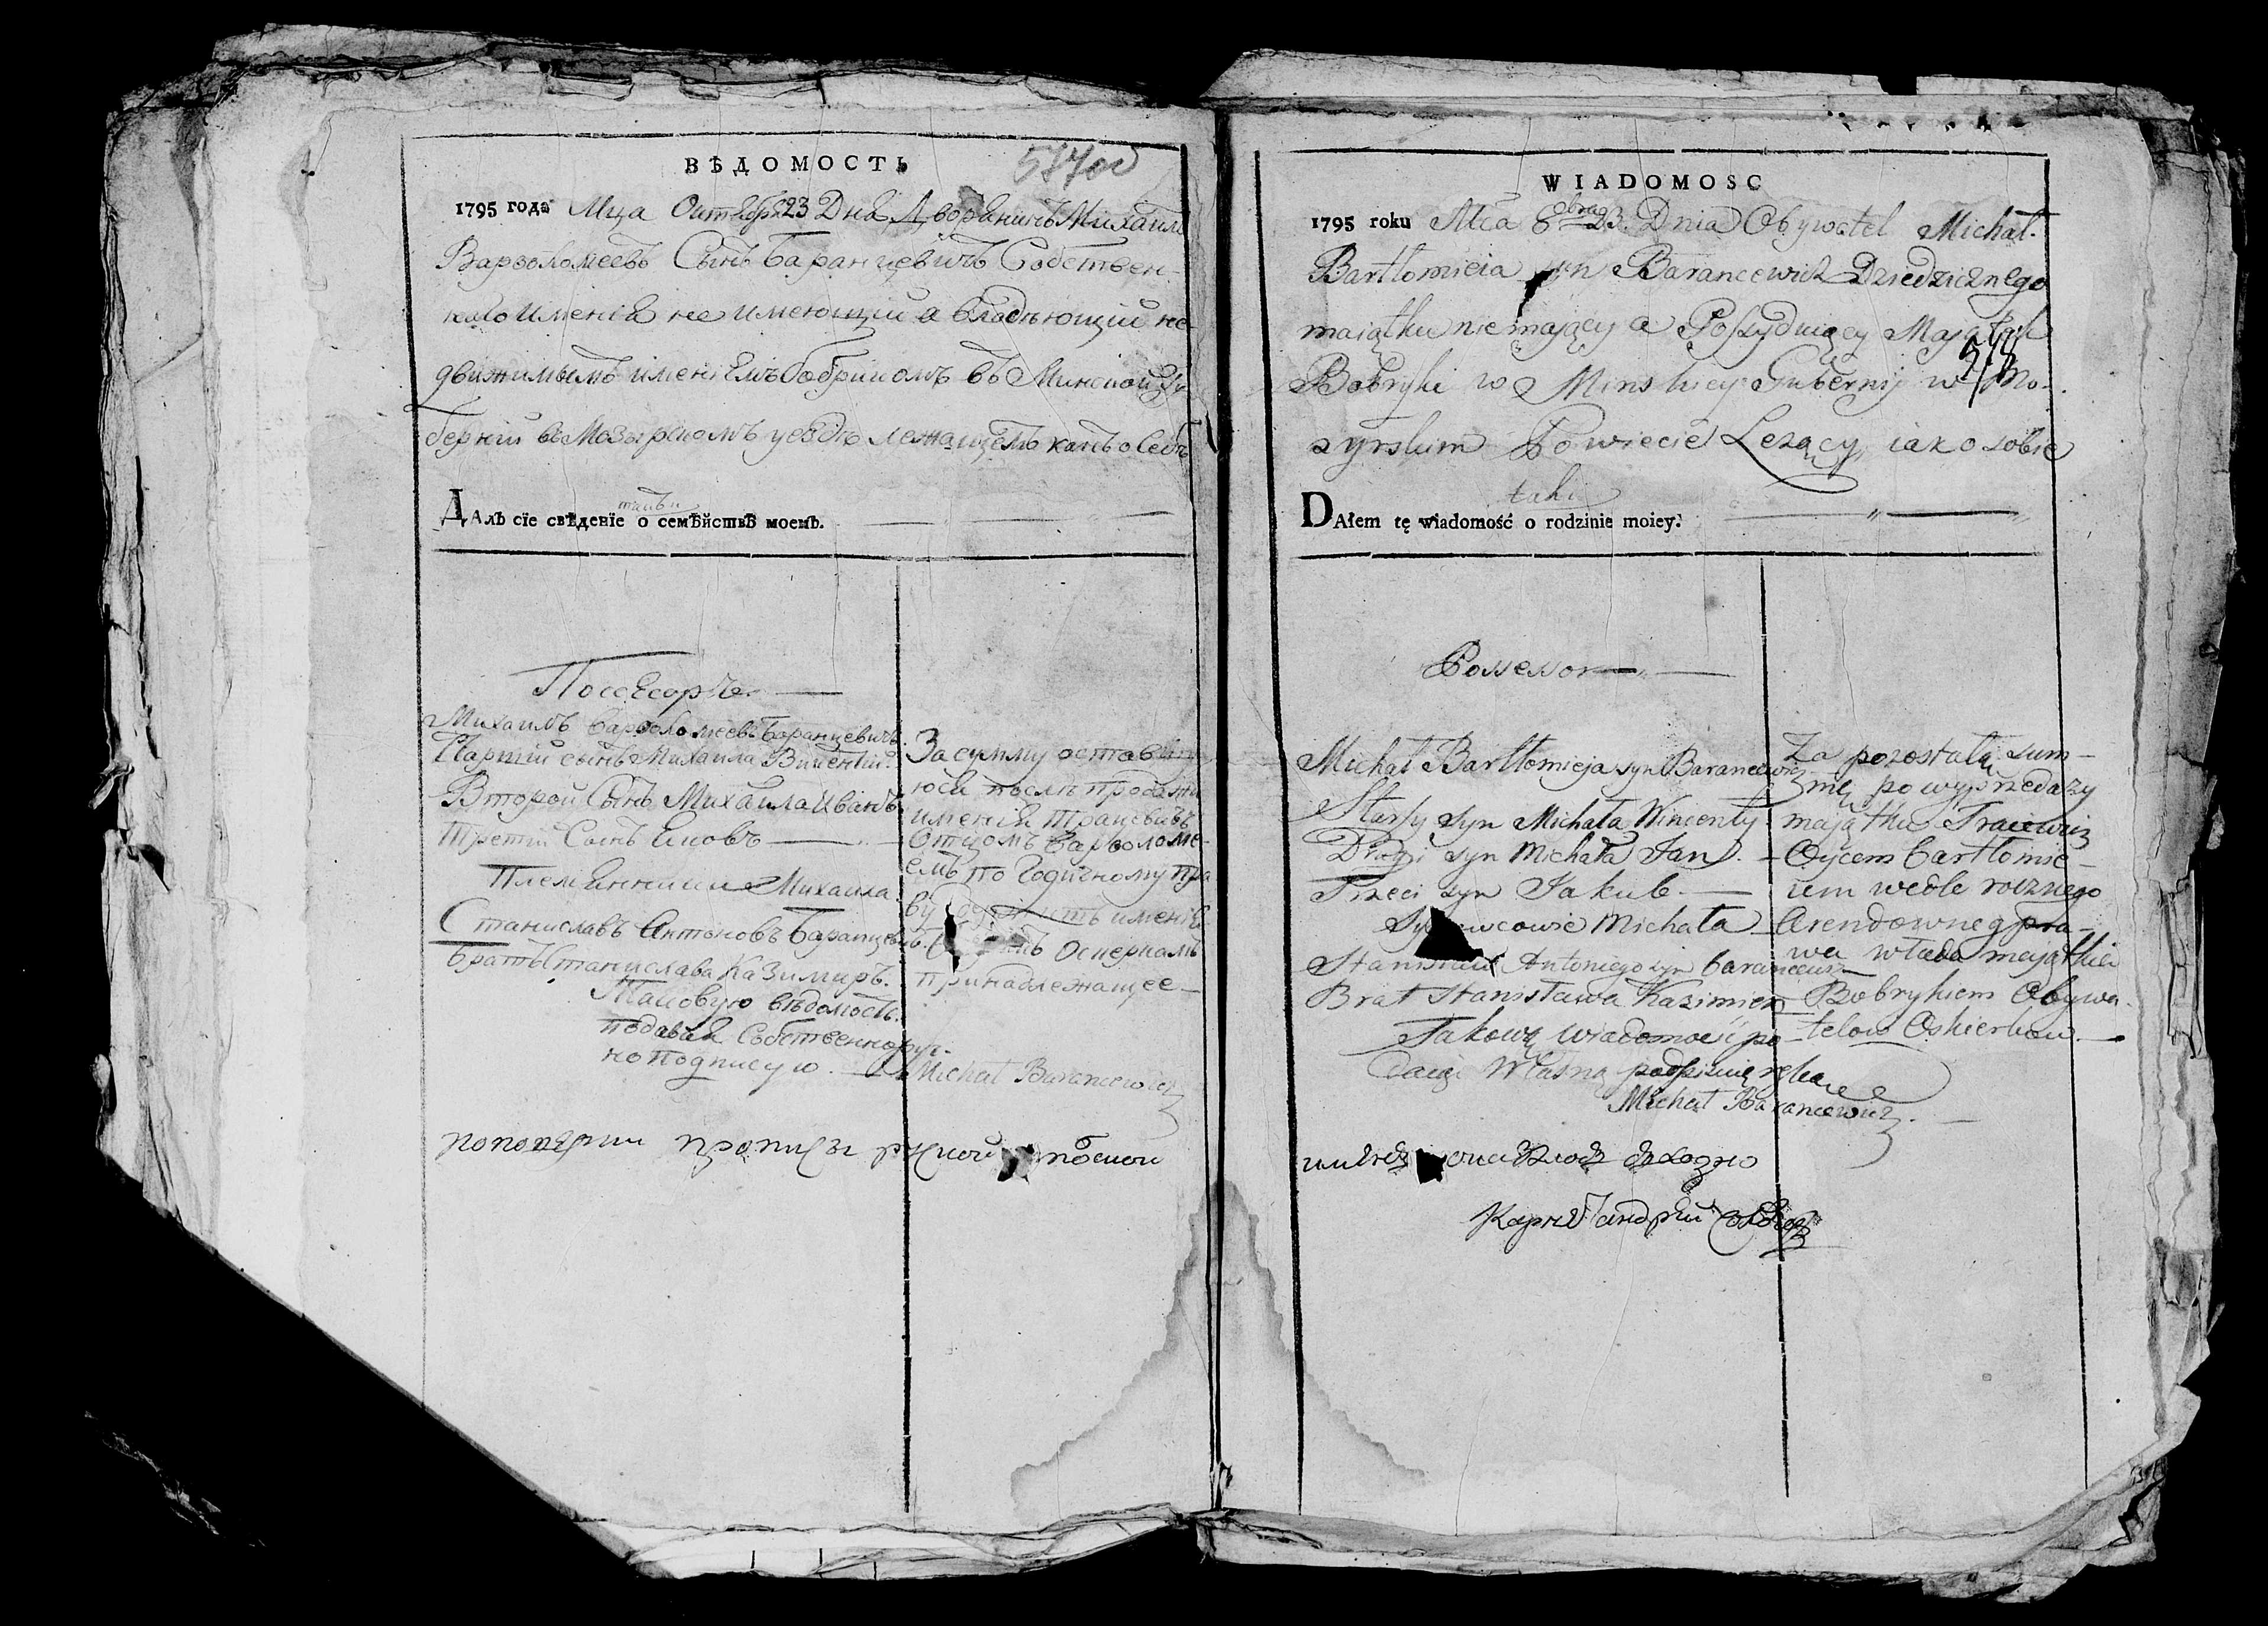 ВѢДОМОСТЬ
1795 года Мца Октября 23 Дня Дворянинъ Михаилъ
Варѳоломеевъ Сынъ Баранцевичъ Собствен-
наго Имения не имеющий а владѣющий не
движимымъ имениемъ Бобрикомъ въ Минской Гу
бернии въ Мозырскомъ уездѣ лежащемъ какъ о Себѣ
такъ и
Далъ сїе свѣденїе о семѣйствѣ моемъ.
Поссесоръ
Михаилъ Варѳоломеевъ Баранцевичъ
сынъ Михаила Викентий
Второй Сынъ Михаила Иванъ
Третий Сынъ Яковъ
Племянники Михаила
Станиславъ Антоновъ Баранцевичъ
Братъ Станислава Казимиръ.
Таковую вѣдомость
подавая Собственнору-
но подписую.
За сумму оставшу
юся послѣ продажи
имения Трацевичъ
Отцомъ Варѳоломе-
емъ по Годичному пра
ву имение
Оскеркамъ
принадлежащее
Michał Barancewicz
WIADOMOSC
1795 roku Mca 8bra 23 Dnia Obywatel Michał
Bartłomieia syn Barancewicz Dziedzicznego
maiątku nie mający a Possyduiący Majątek
578
Bobryk w Minskiey Gubernij w Mo-
zyrskim Powiecie Leżący, iako o sobie
tak i
DAłem tę wiadomość o rodzinie moiey.
Possessor
Michał Bartłomieja syn Barancewicz
Starszy syn Michała Wincenty
Drugi syn Michała Jan
Trzeci syn Jakub
Synowcowie Michała
Stanisław Antoniego syn Barancewicz
Brat Stanisława Kazimierz
Takową wiadomość po-
daiąc Własną podpisuię ręką
Michał Barancewicz
Za pozostałą sum-
mę po wyprzedaży
majątku Tracewicz
Oycem Bartłomie-
iem wedle rocznego
Arendownego pra-
wa włada majątkiem
Bobrykiem Obywa-
telow Oskierkow